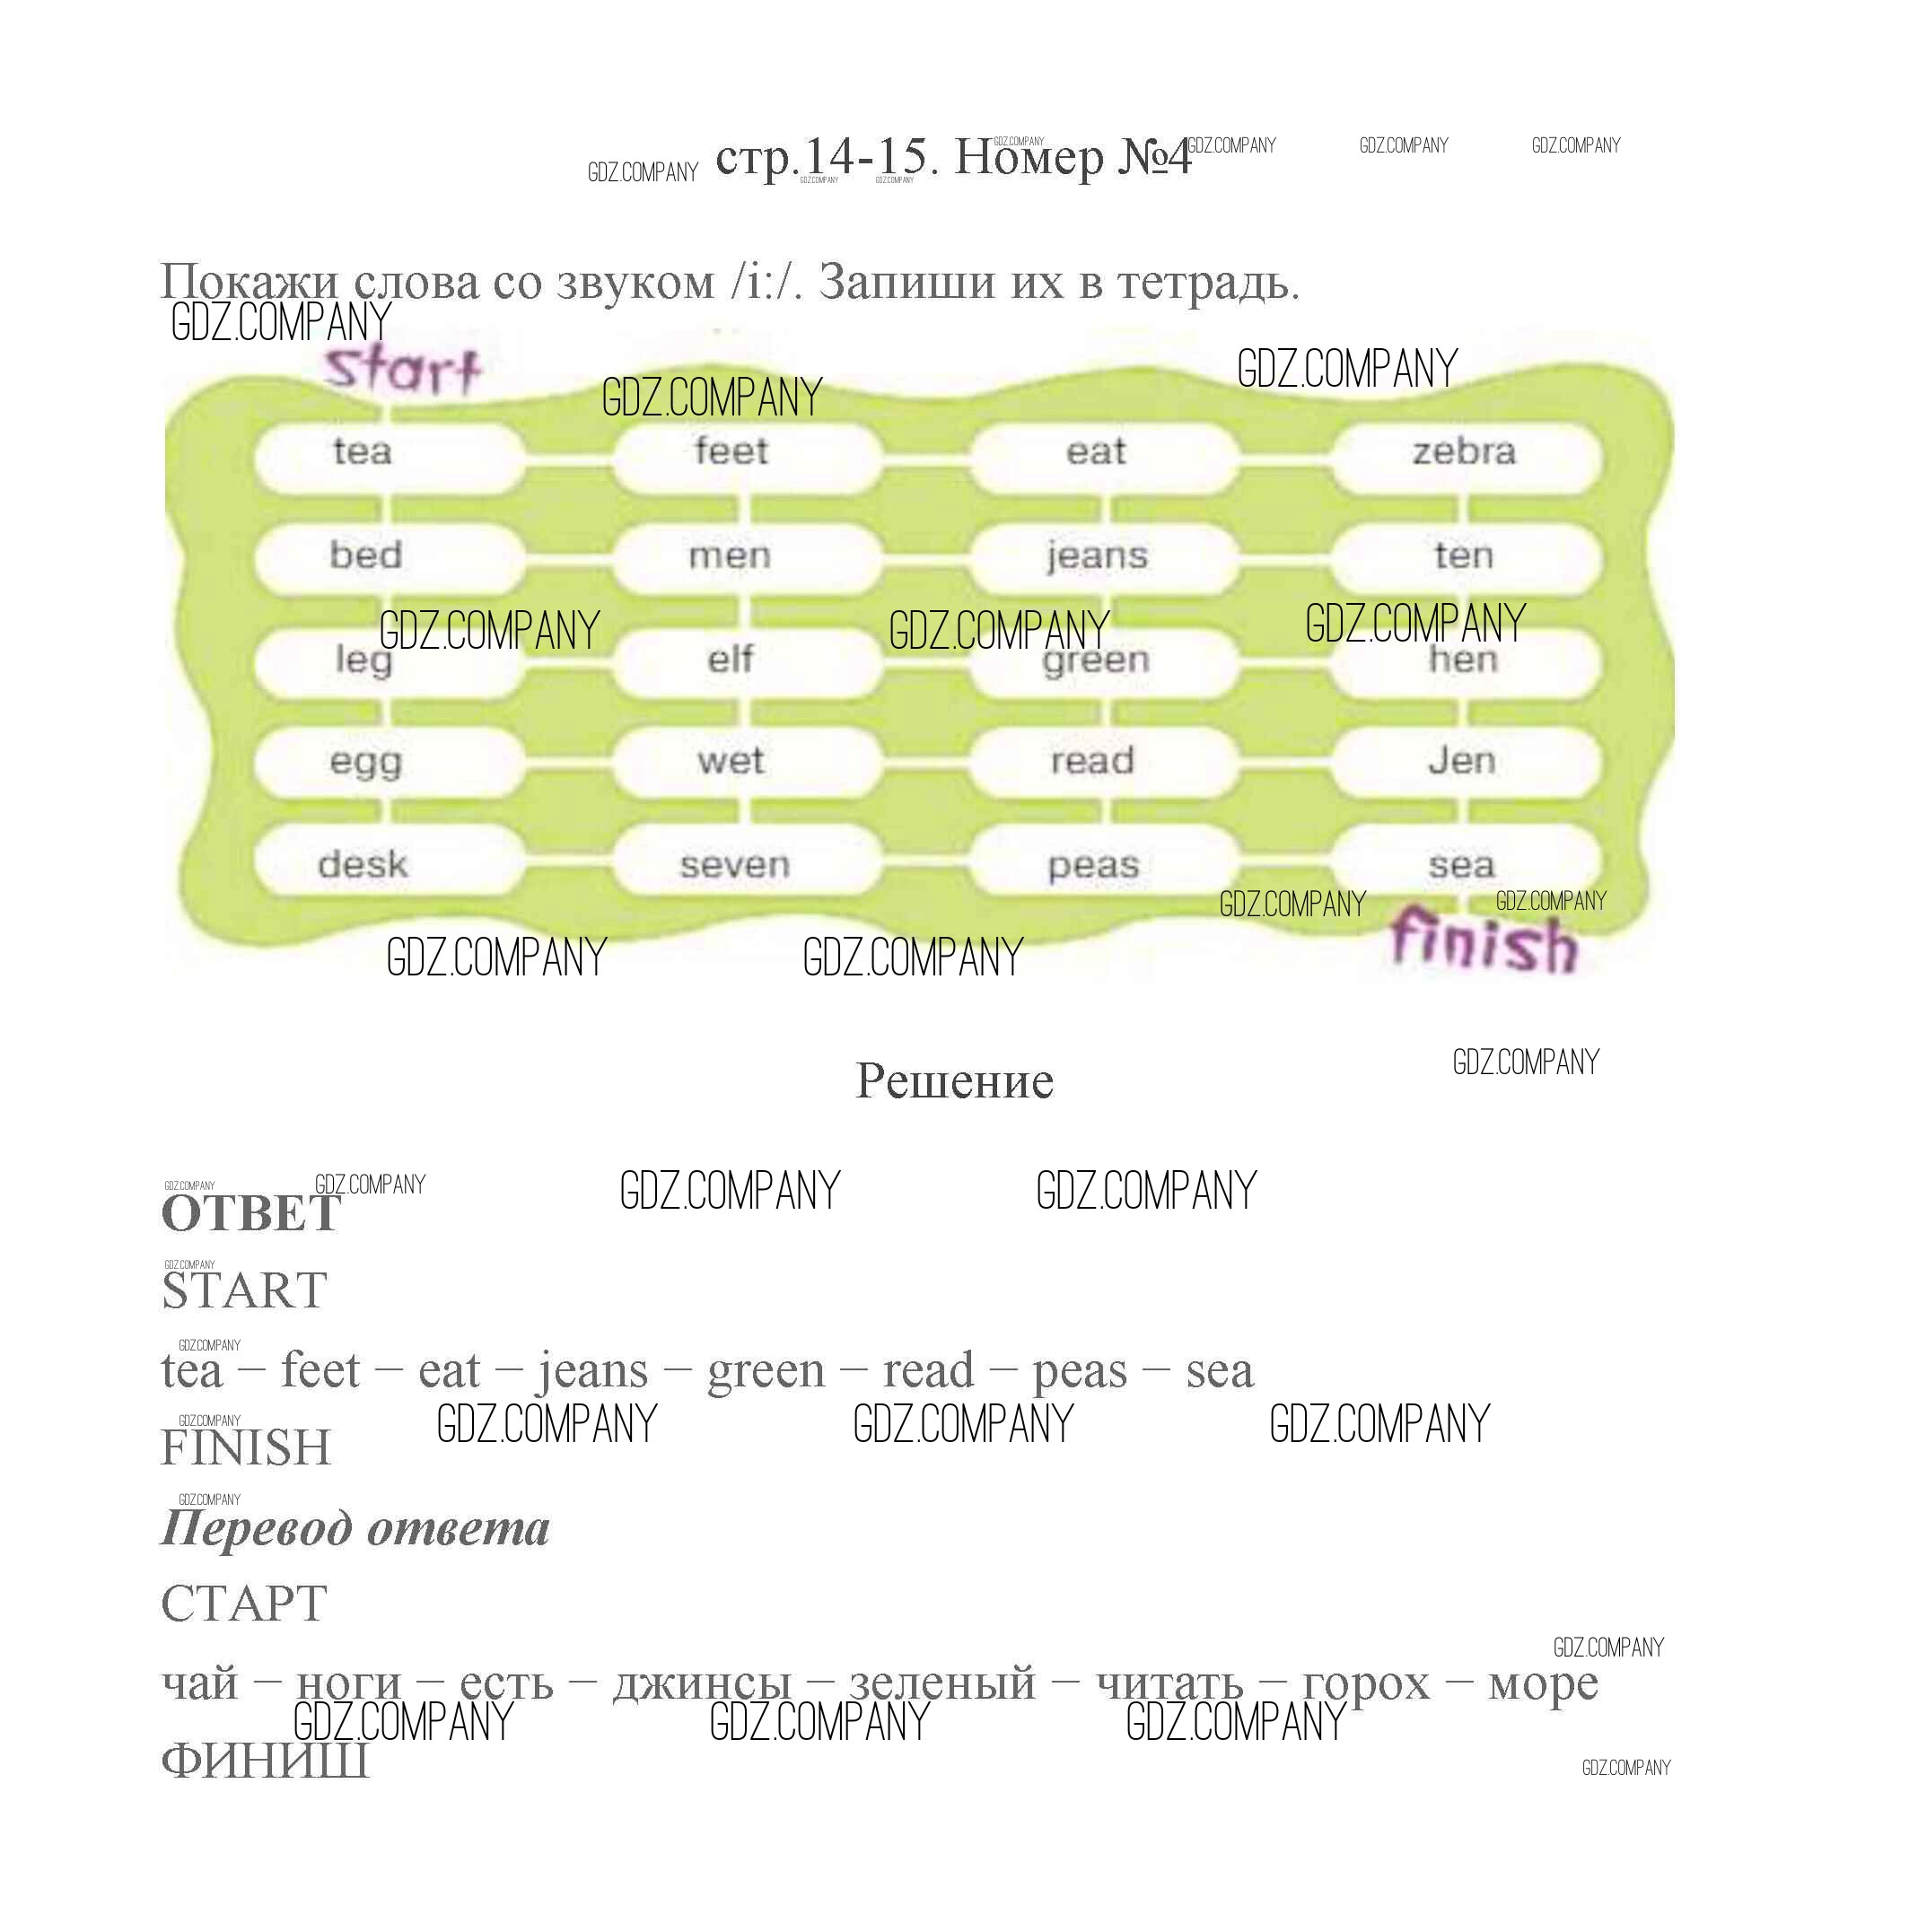 GDZ.COMPANY
GDZ.COMPANY GDZ.COMPANY GDZ.COMPANY
GDZ.COMPANY стр.14-15. Номер №4
GDZ.COMPANY GDZ.COMPANY
Покажи слова со звуком /i:/. Запиши их в тетрадь.
GDZ.COMPANY
start
GDZ.COMPANY
GDZ.COMPANY
tea feet eat zebra
bed men jeans ten
GDZ.COMPANY GDZ.COMPANY GDZ.COMPANY
leg elf green hen
egg wet read Jen
desk seven peas sea
GDZ.COMPANY GDZ.COMPANY
finish
GDZ.COMPANY GDZ.COMPANY
GDZ.COMPANY
Решение
GDZ.COMPANY GDZ.COMPANY GDZ.COMPANY GDZ.COMPANY
ОТВЕТ
GDZ.COMPANY
START
GDZ.COMPANY
tea − feet − eat − jeans − green − read − peas − sea
GDZ.COMPANY GDZ.COMPANY GDZ.COMPANY GDZ.COMPANY
FINISH
GDZ.COMPANY
Перевод ответа
СТАРТ
GDZ.COMPANY
чай − ноги − есть − джинсы − зеленый − читать − горох − море
GDZ.COMPANY GDZ.COMPANY GDZ.COMPANY
ФИНИШ
GDZ.COMPANY